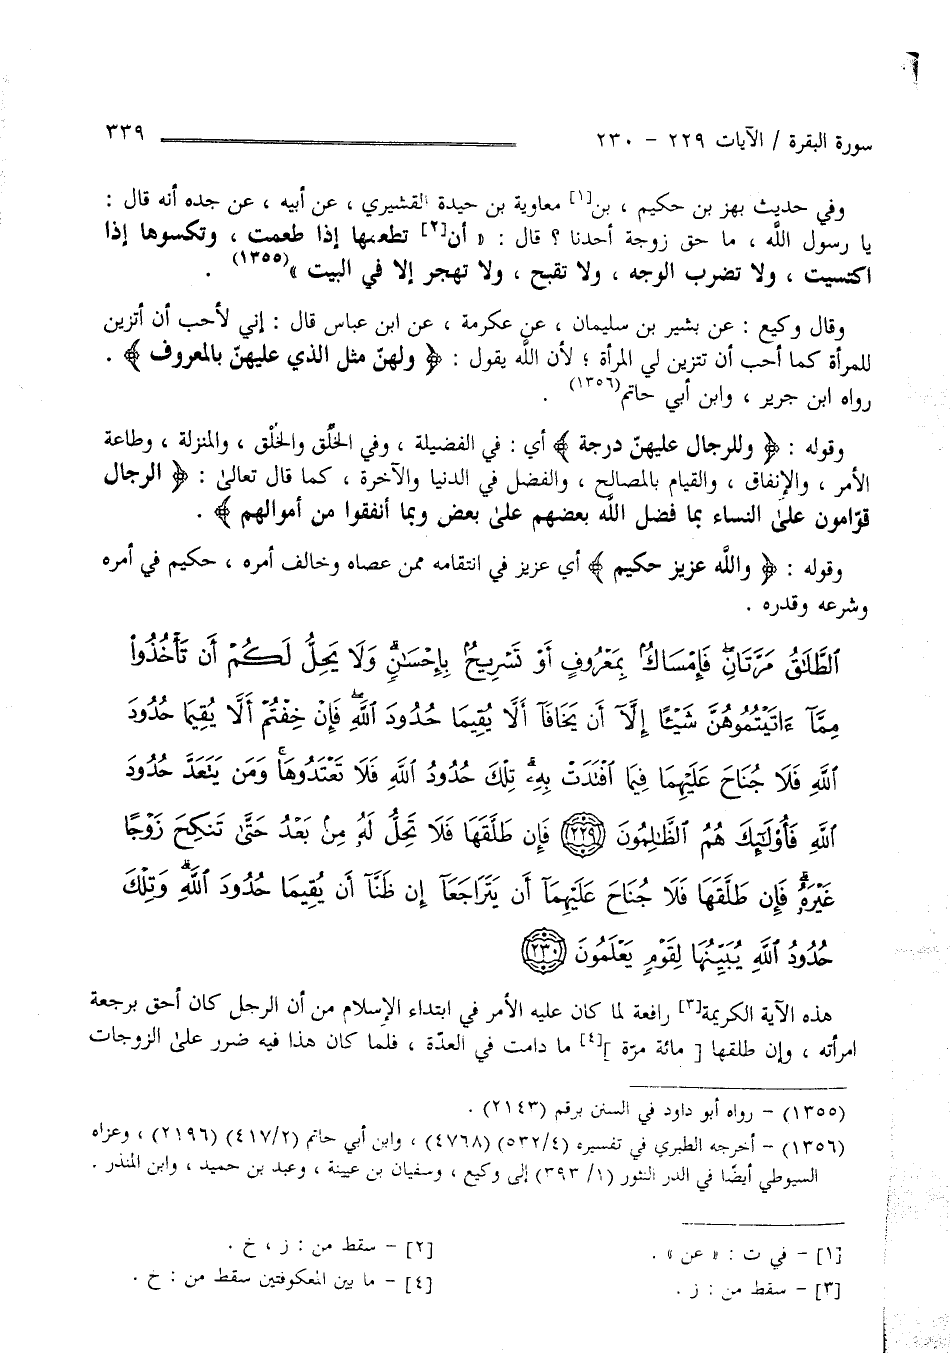 سورة البقرة / الآيات ٢٢٩ - ٢٣٠ ٣٣٩
وفي حديث بهز بن حكيم ، بن[١] معاوية بن حيدة القشيري ، عن أبيه ، عن جده أنه قال :
يا رسول اللَّه ، ما حق زوجة أحدنا ؟ قال : « أن[٢] تطعمها إذا طعمت ، وتكسوها إذا
اكتسيت ، ولا تضرب الوجه ، ولا تقبح ، ولا تهجر إلا في البيت »(١٣٥٥) .
وقال وكيع : عن بشير بن سليمان ، عن عكرمة ، عن ابن عباس قال : إني لأحب أن أتزين
للمرأة كما أحب أن تتزين لي المرأة ؛ لأن اللَّه يقول : ﴿ ولهنّ مثل الذي عليهنّ بالمعروف ﴾ .
رواه ابن جرير ، وابن أبي حاتم(١٣٥٦) .
وقوله : ﴿ وللرجال عليهنّ درجة ﴾ أي : في الفضيلة ، وفي الخَلْق والخُلُق ، والمنزلة ، وطاعة
الأمر ، والإنفاق ، والقيام بالمصالح ، والفضل في الدنيا والآخرة ، كما قال تعالىٰ : ﴿ الرجال
قوّامون علىٰ النساء بما فضل اللَّه بعضهم علىٰ بعض وبما أنفقوا من أموالهم ﴾ .
وقوله : ﴿ واللَّه عزيز حكيم ﴾ أي عزيز في انتقامه ممن عصاه وخالف أمره ، حكيم في أمره
وشرعه وقدره .
ٱلطَّلَٰقُ مَرَّتَانِۖ فَإِمْسَاكُۢ بِمَعْرُوفٍ أَوْ تَسْرِيحُۢ بِإِحْسَٰنٍۗ وَلَا يَحِلُّ لَكُمْ أَن تَأْخُذُوا۟
مِمَّآ ءَاتَيْتُمُوهُنَّ شَيْـًٔا إِلَّآ أَن يَخَافَآ أَلَّا يُقِيمَا حُدُودَ ٱللَّهِۖ فَإِنْ خِفْتُمْ أَلَّا يُقِيمَا حُدُودَ
ٱللَّهِ فَلَا جُنَاحَ عَلَيْهِمَا فِيمَا ٱفْتَدَتْ بِهِۦۗ تِلْكَ حُدُودُ ٱللَّهِ فَلَا تَعْتَدُوهَاۚ وَمَن يَتَعَدَّ حُدُودَ
ٱللَّهِ فَأُو۟لَٰٓئِكَ هُمُ ٱلظَّٰلِمُونَ ٢٢٩ فَإِن طَلَّقَهَا فَلَا تَحِلُّ لَهُۥ مِنۢ بَعْدُ حَتَّىٰ تَنكِحَ زَوْجًا
غَيْرَهُۥۗ فَإِن طَلَّقَهَا فَلَا جُنَاحَ عَلَيْهِمَآ أَن يَتَرَاجَعَآ إِن ظَنَّآ أَن يُقِيمَا حُدُودَ ٱللَّهِۗ وَتِلْكَ
حُدُودُ ٱللَّهِ يُبَيِّنُهَا لِقَوْمٍ يَعْلَمُونَ ٢٣٠
هذه الآية الكريمة[٣] رافعة لما كان عليه الأمر في ابتداء الإسلام من أن الرجل كان أحق برجعة
امرأته ، وإن طلقها [ مائة مرّة ][٤] ما دامت في العدّة ، فلما كان هذا فيه ضرر علىٰ الزوجات
(١٣٥٥) - رواه أبو داود في السنن برقم (٢١٤٣) .
(١٣٥٦) - أخرجه الطبري في تفسيره (٥٣٢/٤) (٤٧٦٨) ، وابن أبي حاتم (٤١٧/٢) (٢١٩٦) ، وعزاه
السيوطي أيضًا في الدر المنثور (١/ ٣٩٣) إلى وكيع ، وسفيان بن عيينة ، وعبد بن حميد ، وابن المنذر .
[١] - في ت : « عن » . [٢] - سقط من : ز ، خ .
[٣] - سقط من : ز . [٤] - ما بين المعكوفتين سقط من : خ .